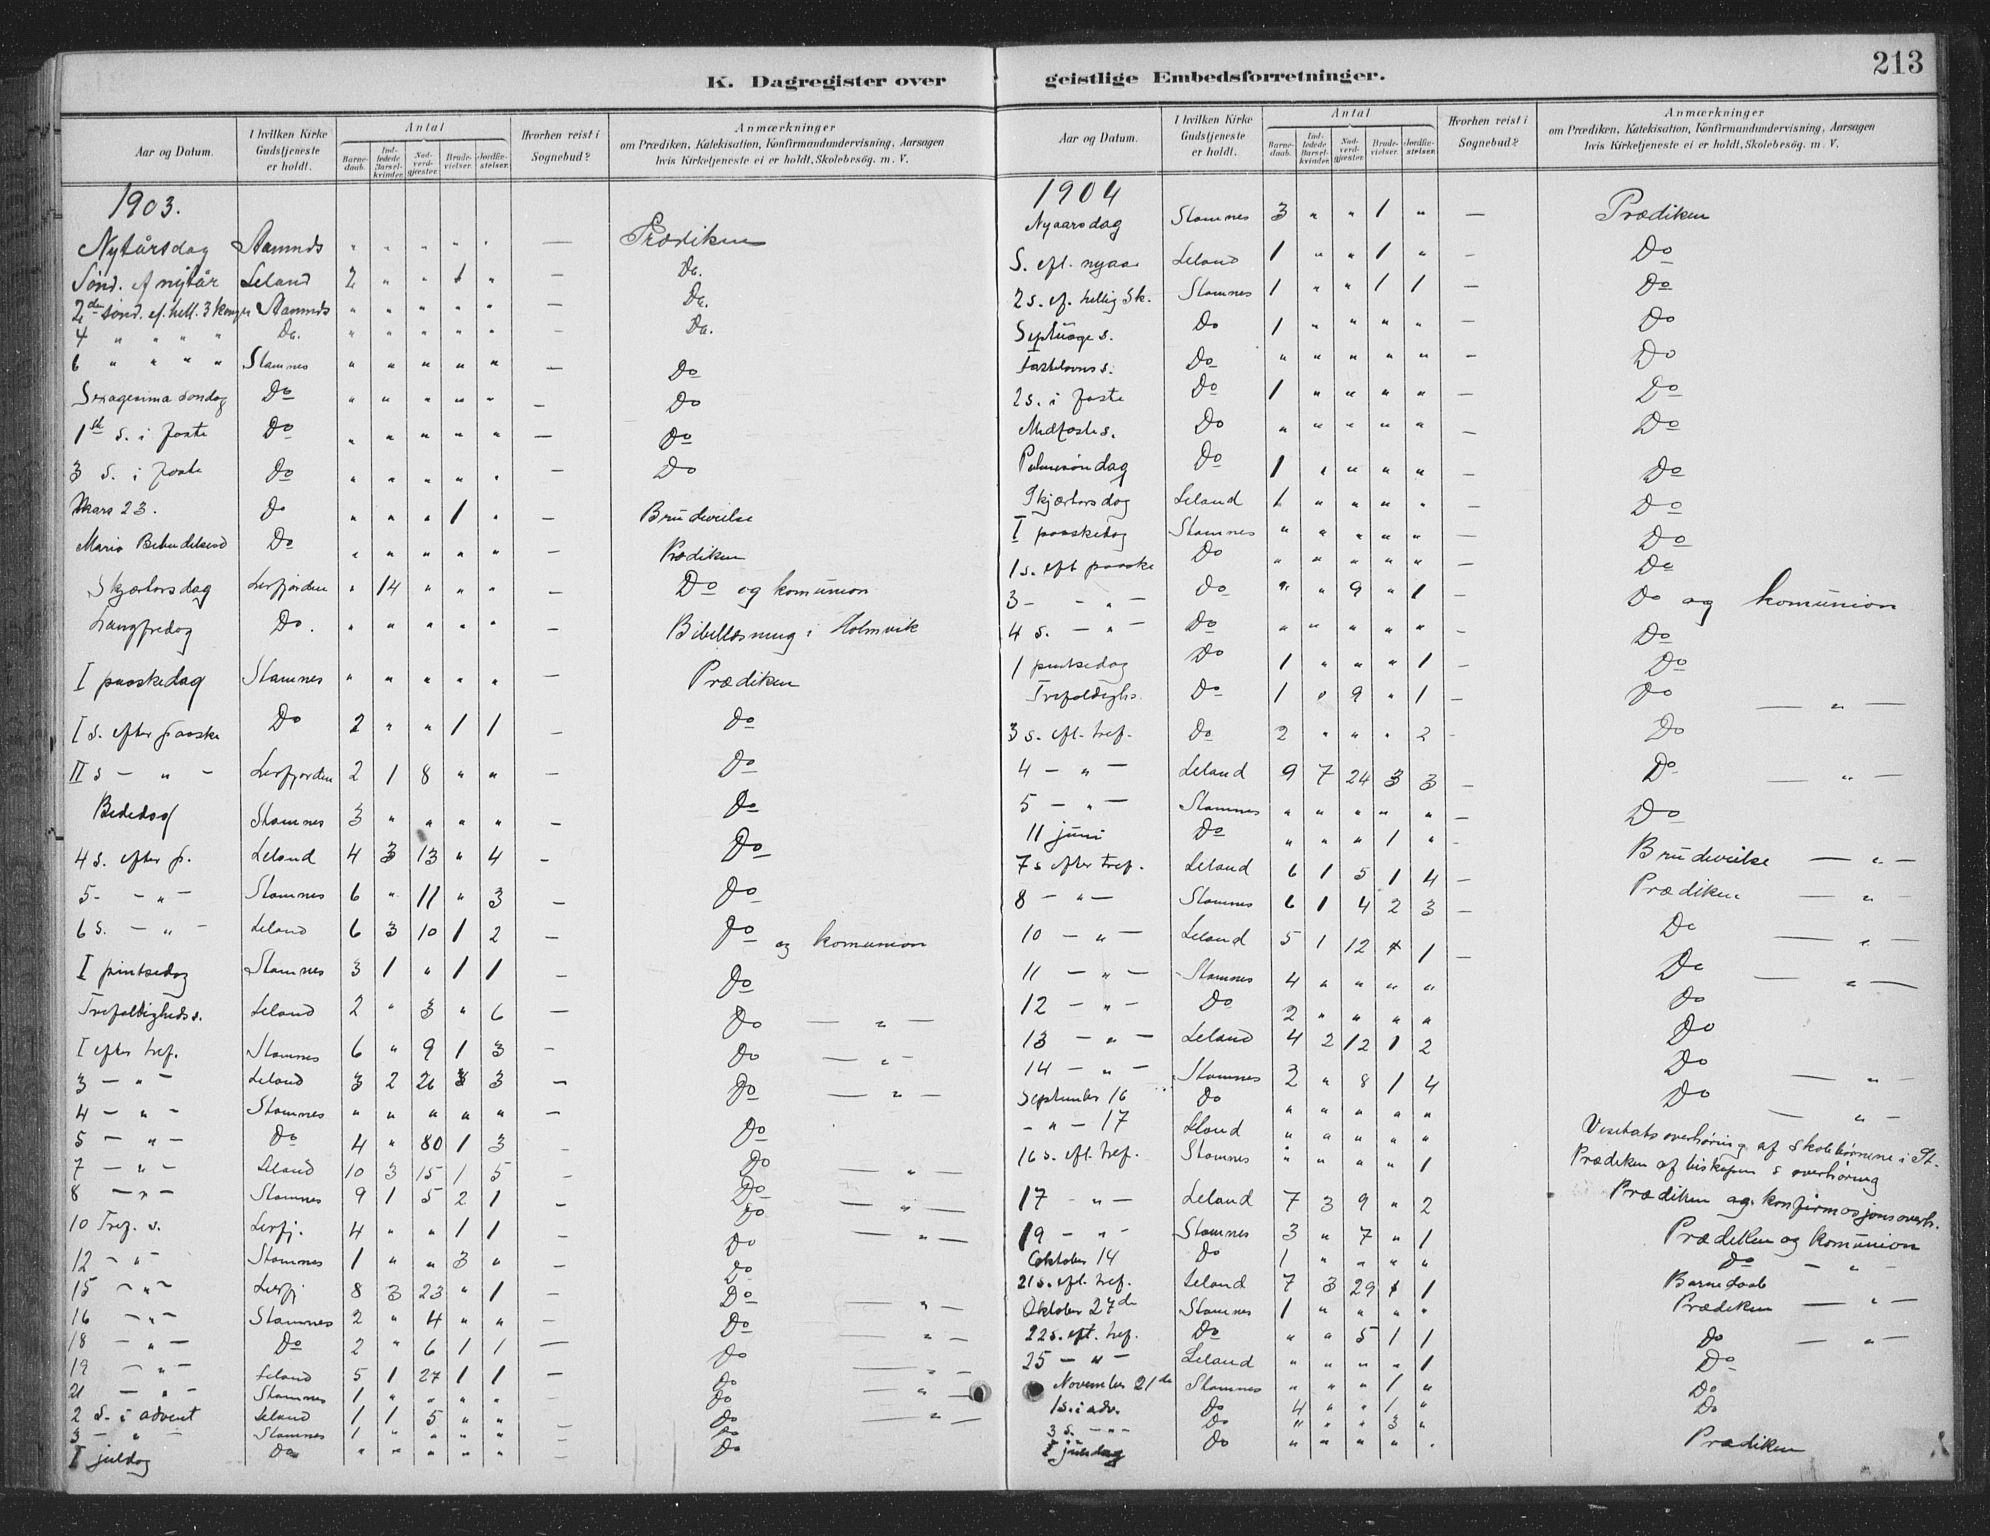 213
K. Dagregister over geistlige Embedsforretninger.
Aar og Datum. I hvilken Kirke Gudstjeneste er holdt. Antal Barnedaab. Indledede Barselkvinder. Nadverdgjæster. Brudevielser. Jordfæstelser. Hvorhen reist i Sognebud? Anmærkninger om Prædiken, Katekisation, Konfirmandundervisning, Aarsagen hvis Kirketjeneste ei er holdt, Skolebesøg. m. V.
1903.
Nytårsdag " " " " " — Prædiken
Sönd. Leland 2 " " 1 " — Do.
2den sönd. ef. hell. 3 konger " " " " " — Do.
4 " " " " Do. " " " " " — Do.
6 " " " " Stamnes " " " " " — Do
Sexagesima söndag Do " " " " " — Do
1st s. i faste Do " " " " " — Do
3 s. i faste Do " " " " " — Do
Mars 23. Do " " " 1 " — Brudevielse
Maria Do " " " " " — Prædiken
Skjærtorsdag Lerfjorden " 14 " " " — Do og komunion
Langfredag Do. " " " " " — Bibellæsning i Holmvik
I paaskedag Stamnes " " " " " — Prædiken
I s. efter paaske Do 2 " " 1 1 — Do
II s — " — Lerfjorden 2 1 8 " " — Do
Bededag Stamnes 3 " " " " — Do
4 s. efter p. Leland 4 3 13 " 4 — Do
5 — " — Stamnes 6 " 11 " 3 — Do
6 s. — " — Leland 6 3 10 1 2 — Do og komunion
I pintsedag Stamnes 3 1 " 1 1 — Do
Trefoldigheds s. Leland 2 " 3 " 6 — Do — " —
I efter tref. Stamnes 6 " 9 1 3 — Do — " —
3 — " — Leland 3 2 26 3 3 — Do — " —
4 — " — Stamnes " " " " " — Do
5 — " — Do 4 " 80 1 3 — Do — " —
7 — " — Leland 10 3 15 1 5 — Do — " —
8 — " — Stamnes 9 1 5 2 1 — Do — " —
10 Tref. s. Lerfj. 4 " " 1 1 — Do
12 — " — Stamnes 1 " " 3 " — Do
15 — " — Lerfj 8 3 23 " 1 — Do — " —
16 — " — Stamnes 2 " 4 " " — Do — " —
18 — " — Do 2 " 6 1 1 — Do — " —
19 — " — Leland 5 1 27 1 1 — Do — " —
21 — " — Stamnes 1 " " " " Do
2 s. i advent Leland 1 1 5 " " — Do — " —
3 — " — Stamnes 1 " " " " — Do
I juldag Do " " " " " — Do
Aar og Datum. I hvilken Kirke Gudstjeneste er holdt. Antal Barnedaab. Indledede Barselkvinder. Nadverdgjæster. Brudevielser. Jordfæstelser. Hvorhen reist i Sognebud? Anmærkninger om Prædiken, Katekisation, Konfirmandundervisning, Aarsagen hvis Kirketjeneste ei er holdt, Skolebesøg. m. V.
1904
Nyaarsdag Stamnes 3 " " 1 " — Prædiken
S. eft. nyaar Leland 1 " " 1 " — Do
2 s. ef. hellig 3k. Stamnes 1 " " 1 1 — Do
Septuage s. Do 1 " " " " — Do
Fastelavns s. Do " " " " " — Do
2 s. i faste Do 1 " " " " — Do
Midfaste s. Do " " " " " — Do
Palmesöndag Do 1 " " " " — Do
Skjærtorsdag Leland 1 " " " " — Do
I paaskedag Stamnes " " " " " — Do
1 s. eft paaske Do " " " " " — Do
3 — " — Do " " 9 " 1 — Do og komunion
4 s. — " — Do " " " " " — Do
1 pintsedag Do 1 " " " 1 — Do
Trefoldighs. Do 1 " 9 " 1 — Do — " —
3 s. eft. tref. Do 2 " " " 2 — Do
4 — " — Leland 9 7 24 3 3 — Do — " —
5 — " — Stamnes " " " " " — Do
11 juni Do " " " 1 " — Brudevielse
7 s efter tref. Leland 6 1 5 1 4 — Prædiken — " —
8 — " — Stamnes 6 1 4 2 3 — Do — " —
10 — " — Leland 5 1 12 1 — Do — " —
11 — " — Stamnes 4 " " " " Do
12 — " — Do 2 " " " " Do
13 — " — Leland 4 2 12 1 2 Do — " —
14 — " — Stamnes 2 " 8 1 4 Do — " —
September 16 Do " " " " " Visitats overhøring af skolebørnene i St.
— " — 17 Lland " " " " " Prædiken af biskopen s overhøring
16 s. eft. tref. Stamnes " " " " 1 Prædiken og konfirmasjonsoverh.
17 — " — Leland 7 3 9 " 2 Prædiken og komunion
19 — " — Stamnes 3 " 7 " 1 Do — " —
Oktober 14 Do 1 " " " " Barnedaab
21 s. eft. tref. Leland 7 3 29 1 Prædiken — " —
Oktober 27de Stamnes 1 " " " "
22 s. eft. tref. Do " " 5 1 1 Do — " —
25 — " — Leland " " " " 1 Do
November 21de Stamnes " " " 1 " Do
1 s. i adv. Do 4 " " 1 " Do
3 s. — " — Do " " " 3 "
I juledag Do " " " " " Prædiken